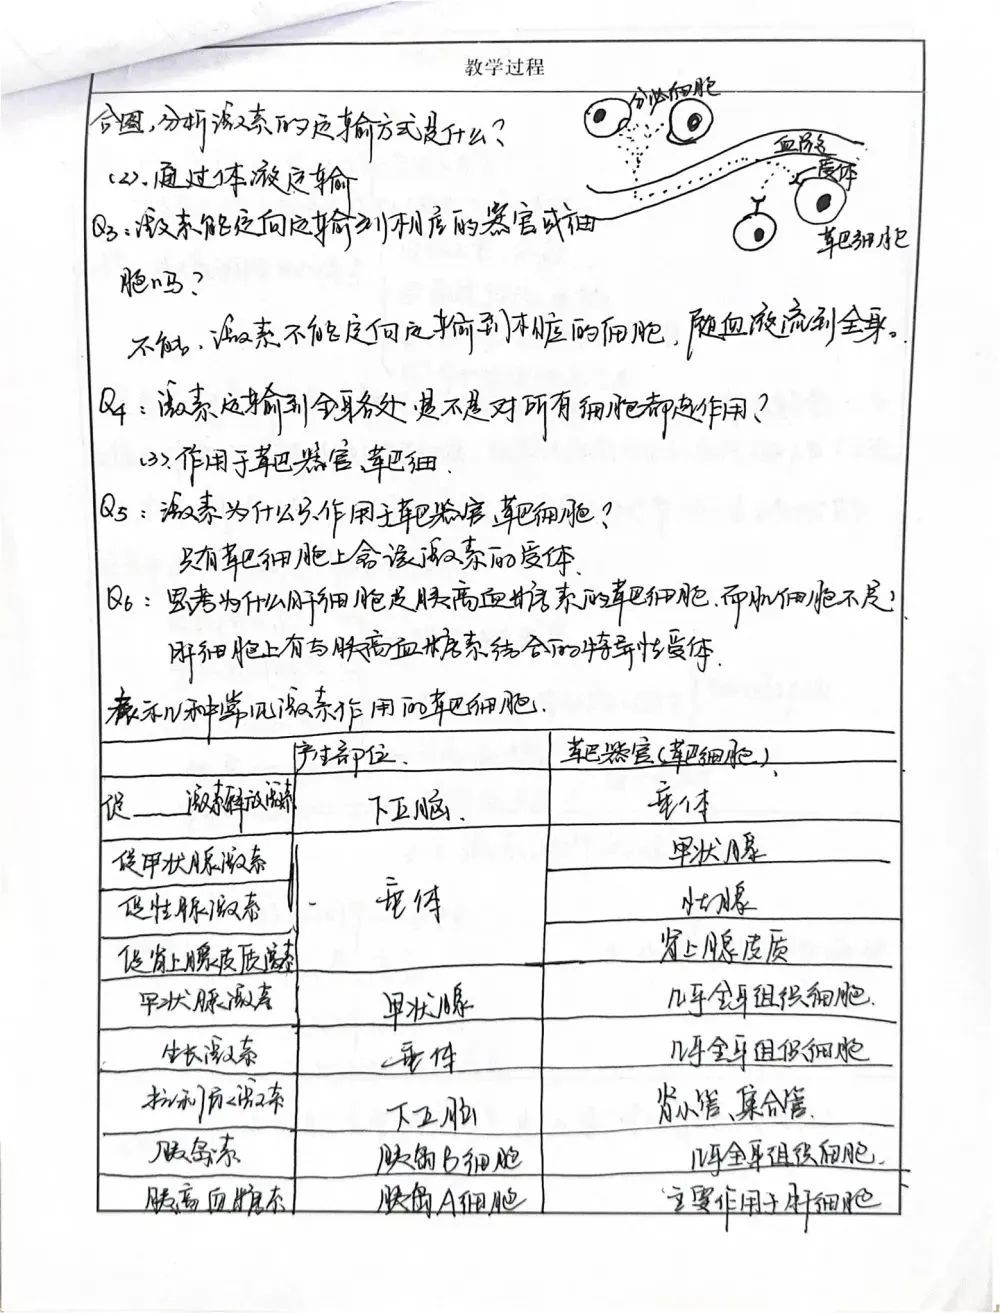 教学过程
合图,分析激素的运输方式是什么?
(2)、通过体液运输
分泌细胞
血管
受体
靶细胞
Q3:激素能定向运输到相应的器官或细
胞吗?
不能、激素不能定向运输到相应的细胞,随血液流到全身。
Q4:激素运输到全身各处,是不是对所有细胞都起作用?
(3)、作用于靶器官、靶细.
Q5:激素为什么只作用于靶器官、靶细胞?
只有靶细胞上含该激素的受体.
Q6:思考为什么肝细胞是胰高血糖素的靶细胞,而肌细胞不是?
肝细胞上有与胰高血糖素结合的特异性受体.
展示几种常见激素作用的靶细胞.
产生部位. 靶器官(靶细胞)
促____激素释放激素 下丘脑. 垂体
促甲状腺激素 甲状腺
促性腺激素 垂体 性腺
促肾上腺皮质激素 肾上腺皮质
甲状腺激素 甲状腺 几乎全身组织细胞.
生长激素 垂体 几乎全身组织细胞
抗利尿激素 下丘脑 肾小管、集合管.
胰岛素 胰岛B细胞 几乎全身组织细胞.
胰高血糖素 胰岛A细胞 主要作用于肝细胞